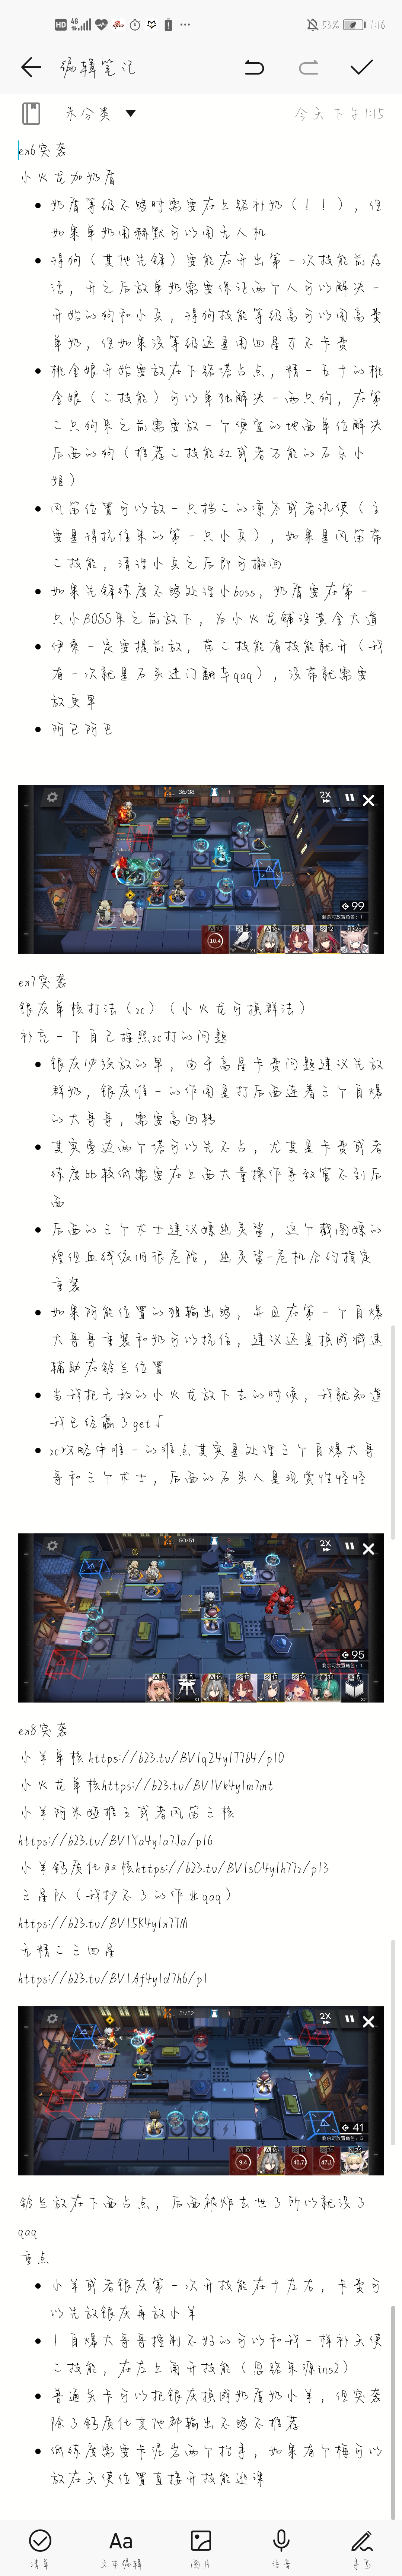 53% 1:16
编辑笔记
未分类
今天下午1:15
ex6突袭
小火龙加奶盾
奶盾等级不够时需要在上路补奶（！！），但
如果单奶用赫默可以用无人机
德狗（其他先锋）要能在开出第一次技能前存
活，开之后放单奶需要保证两个人可以解决一
开始的狗和小兵，德狗技能等级高可以用高费
单奶，但如果没等级还是用四星才不卡费
桃金娘开始要放在下路塔占点，精一五十的桃
金娘（二技能）可以单独解决一两只狗，在第
二只狗来之前需要放一个便宜的地面单位解决
后面的狗（推荐二技能红或者万能的石乐小
姐）
风笛位置可以放一只挡二的凛冬或者讯使（主
要是得抗住来的第一只小兵），如果是风笛带
二技能，清理小兵之后即可撤回
如果先锋练度不够处理小boss，奶盾要在第一
只小BOSS来之前放下，为小火龙铺设黄金大道
伊桑一定要提前放，带二技能有技能就开（我
有一次就是石头进门翻车qaq），没带就需要
放更早
阿巴阿巴
36/38
2X
99
剩余可放置角色：1
10.4
ex7突袭
银灰单核打法（zc）（小火龙可换群法）
补充一下自己按照zc打的问题
银灰勉强放的早，由于高星卡费问题建议先放
群奶，银灰唯一的作用是打后面连着三个自爆
的大哥哥，需要高回转
其实旁边两个塔可以先不占，尤其是卡费或者
练度比较低需要在上面大量操作导致管不到后
面
后面的三个术士建议嫖幽灵鲨，这个截图嫖的
煌但血线依旧很危险，幽灵鲨-危机合约指定
重装
如果阿能位置的狙输出够，并且在第一个自爆
大哥哥重装和奶可以抗住，建议还是换成减速
辅助在铃兰位置
当我把无敌的小火龙放下去的时候，我就知道
我已经赢了get√
zc攻略中唯一的难点其实是处理三个自爆大哥
哥和三个术士，后面的石头人是观赏性怪怪
50/51
2X
95
剩余可放置角色：1
ex8突袭
小羊单核 https://b23.tv/BV1qZ4y1T7b4/p10
小火龙单核https://b23.tv/BV1Vk4y1m7mt
小羊阿米娅推王或者风笛三核
https://b23.tv/BV1Ya4y1a7Ja/p16
小羊钙质化双核https://b23.tv/BV1sC4y1h77z/p13
三星队（我抄不了的作业qaq）
https://b23.tv/BV15K4y1x7TM
无精二三四星
https://b23.tv/BV1Af4y1d7h6/p1
51/52
2X
41
9.4
40.7
47.1
铃兰放在下面占点，后面被炸去世了所以就没了
qaq
重点
小羊或者银灰第一次开技能在十左右，卡费可
以先放银灰再放小羊
！自爆大哥哥控制不好的可以和我一样补天使
二技能，在左上角开技能（思路来源ins2）
普通关卡可以把银灰换成奶盾奶小羊，但突袭
除了钙质化其他都输出不够不推荐
低练度需要卡泥岩两个抬手，如果有个梅可以
放在天使位置直接开技能逃课
清单 文本编辑 图片 语音 手写